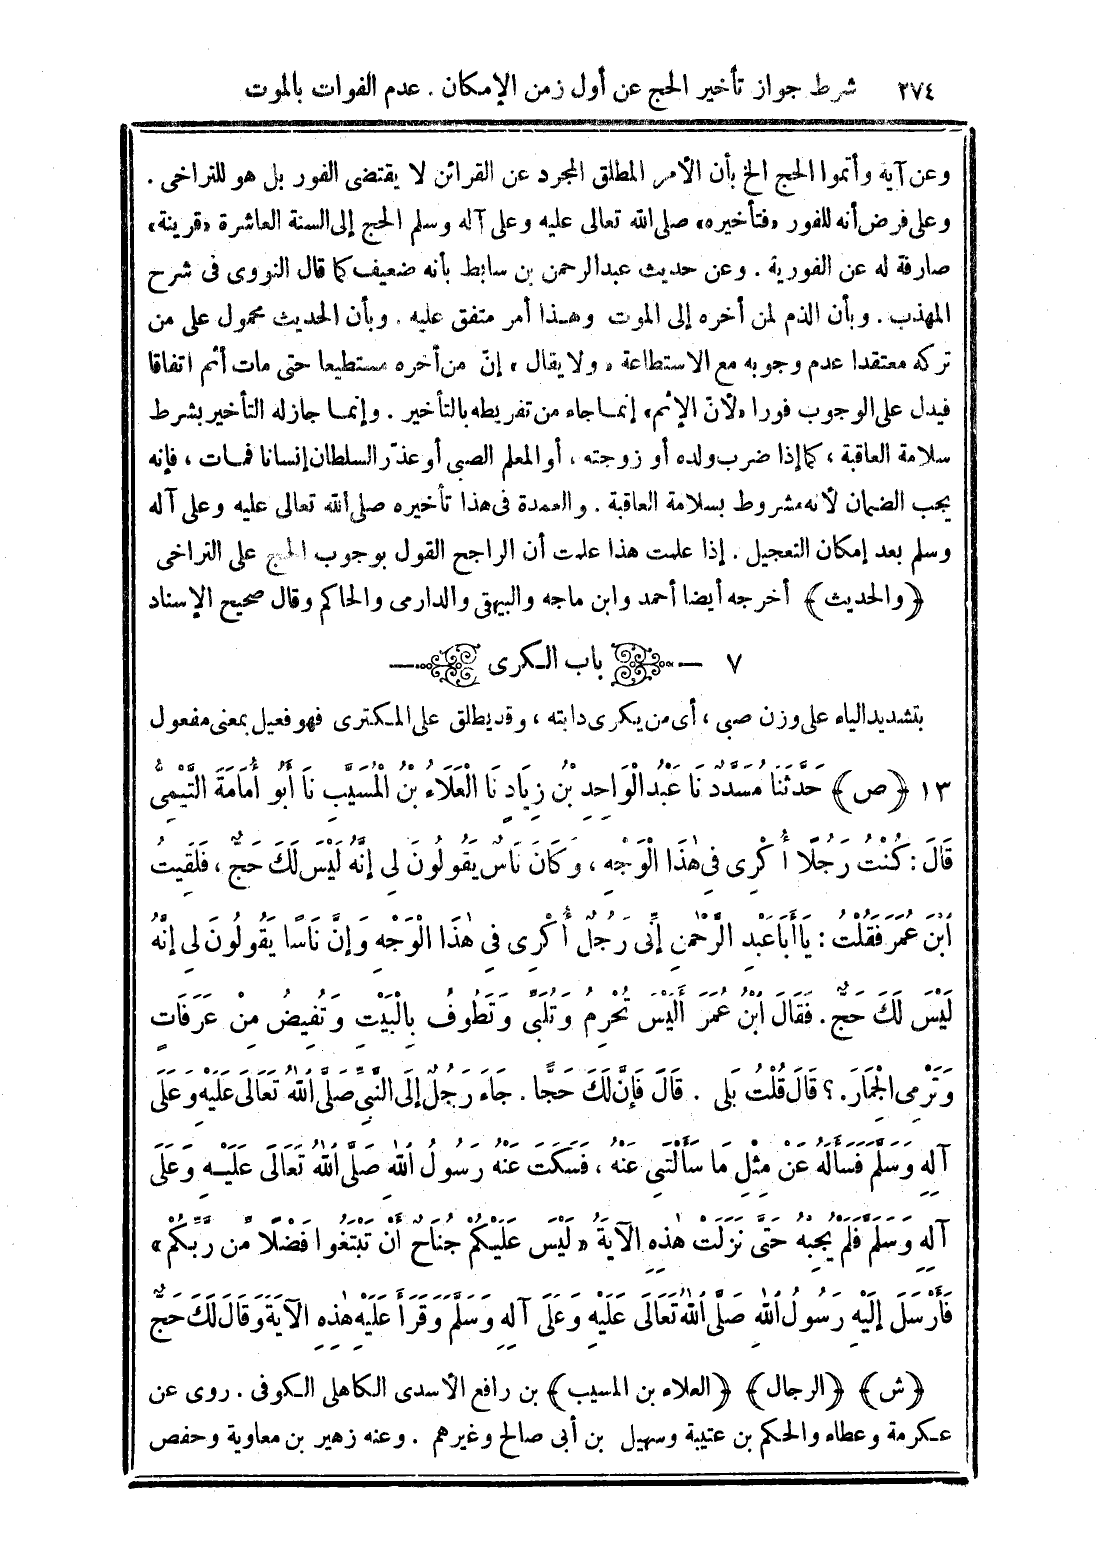 ٢٧٤ شرط جواز تأخير الحج عن أول زمن الإمكان . عدم الفوات بالموت
وعن آية وأتموا الحج الخ بأن الأمر المطلق المجرد عن القرائن لا يقتضى الفور بل هو للتراخى .
وعلى فرض أنه للفور «فتأخيره» صلى الله تعالى عليه وعلى آله وسلم الحج إلى السنة العاشرة «قرينة»
صارفة له عن الفورية . وعن حديث عبد الرحمن بن سابط بأنه ضعيف كما قال النووى فى شرح
المهذب . وبأن الذم لمن أخره إلى الموت وهذا أمر متفق عليه . وبأن الحديث محمول على من
تركه معتقدا عدم وجوبه مع الاستطاعة «ولا يقال» إنّ من أخره مستطيعا حتى مات أثم اتفاقا
فيدل على الوجوب فورا «لأنّ الإثم» إنما جاء من تفريطه بالتأخير . وإنما جاز له التأخير بشرط
سلامة العاقبة ، كما إذا ضرب ولده أو زوجته ، أو المعلم الصبى أو عذّر السلطان إنسانا فمات ، فإنه
يجب الضمان لأنه مشروط بسلامة العاقبة . والعمدة فى هذا تأخيره صلى الله تعالى عليه وعلى آله
وسلم بعد إمكان التعجيل . إذا علمت هذا علمت أن الراجح القول بوجوب الحج على التراخى
﴿والحديث﴾ أخرجه أيضا أحمد وابن ماجه والبيهقى والدارمى والحاكم وقال صحيح الإسناد
٧ — باب الكرى —
بتشديد الياء على وزن صبى ، أى من يكرى دابته ، وقد يطلق على المكترى فهو فعيل بمعنى مفعول
١٣ ﴿ص﴾ حَدَّثَنَا مُسَدَّدٌ نَا عَبْدُ الْوَاحِدِ بْنُ زِيَادٍ نَا الْعَلَاءُ بْنُ الْمُسَيَّبِ نَا أَبُو أُمَامَةَ التَّيْمِىُّ
قَالَ : كُنْتُ رَجُلًا أُكْرِى فِى هٰذَا الْوَجْهِ ، وَكَانَ نَاسٌ يَقُولُونَ لِى إِنَّهُ لَيْسَ لَكَ حَجٌّ ، فَلَقِيتُ
ابْنَ عُمَرَ فَقُلْتُ : يَا أَبَا عَبْدِ الرَّحْمٰنِ إِنِّى رَجُلٌ أُكْرِى فِى هٰذَا الْوَجْهِ وَإِنَّ نَاسًا يَقُولُونَ لِى إِنَّهُ
لَيْسَ لَكَ حَجٌّ . فَقَالَ ابْنُ عُمَرَ أَلَيْسَ تُحْرِمُ وَتُلَبِّى وَتَطُوفُ بِالْبَيْتِ وَتُفِيضُ مِنْ عَرَفَاتٍ
وَتَرْمِى الْجِمَارَ . ؟ قَالَ قُلْتُ بَلَى . قَالَ فَإِنَّ لَكَ حَجًّا . جَاءَ رَجُلٌ إِلَى النَّبِىِّ صَلَّى اللهُ تَعَالَى عَلَيْهِ وَعَلَى
آلِهِ وَسَلَّمَ فَسَأَلَهُ عَنْ مِثْلِ مَا سَأَلْتَنِى عَنْهُ ، فَسَكَتَ عَنْهُ رَسُولُ اللهِ صَلَّى اللهُ تَعَالَى عَلَيْهِ وَعَلَى
آلِهِ وَسَلَّمَ فَلَمْ يُجِبْهُ حَتَّى نَزَلَتْ هٰذِهِ الْآيَةُ «لَيْسَ عَلَيْكُمْ جُنَاحٌ أَنْ تَبْتَغُوا فَضْلًا مِنْ رَبِّكُمْ»
فَأَرْسَلَ إِلَيْهِ رَسُولُ اللهِ صَلَّى اللهُ تَعَالَى عَلَيْهِ وَعَلَى آلِهِ وَسَلَّمَ وَقَرَأَ عَلَيْهِ هٰذِهِ الْآيَةَ وَقَالَ لَكَ حَجٌّ
﴿ش﴾ ﴿الرجال﴾ ﴿العلاء بن المسيب﴾ بن رافع الأسدى الكاهلى الكوفى . روى عن
عكرمة وعطاء والحكم بن عتيبة وسهيل بن أبى صالح وغيرهم . وعنه زهير بن معاوية وحفص